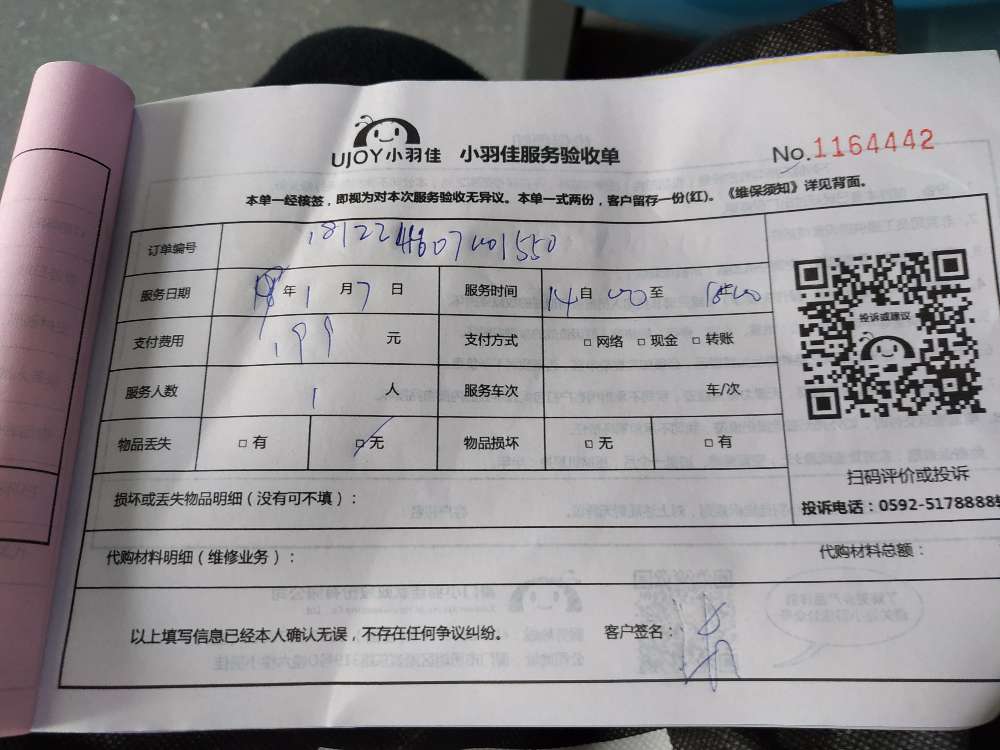 UJOY小羽佳 小羽佳服务验收单 No.1164442
本单一经核签，即视为对本次服务验收无异议。本单一式两份，客户留存一份(红)。《维保须知》详见背面。
订单编号
服务日期 年 1 月 7 日 服务时间 14 自 00 至
支付费用 199 元 支付方式 □ 网络 □ 现金 □ 转账
服务人数 1 人 服务车次 车/次
物品丢失 □ 有 □ 无 物品损坏 □ 无 □ 有
损坏或丢失物品明细（没有可不填）：
代购材料明细（维修业务）： 代购材料总额：
以上填写信息已经本人确认无误，不存在任何争议纠纷。 客户签名：
投诉或建议
扫码评价或投诉
投诉电话：0592-5178888